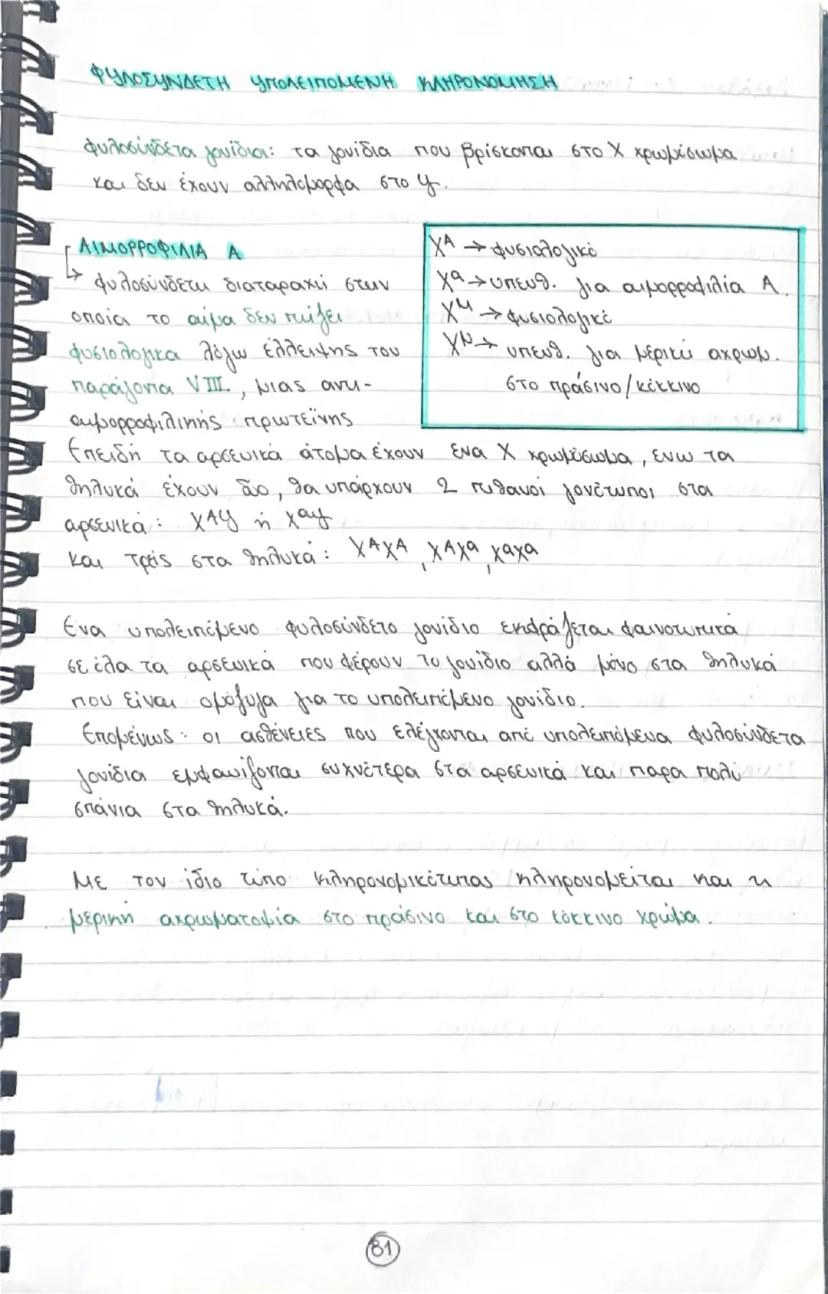 ΦΥΛΟΣΥΝΔΕΤΗ ΥΠΟΛΕΙΠΟΜΕΝΗ ΚΛΗΡΟΝΟΜΗΣΗ
Φυλοσύνδετα γονίδια: τα γονίδια που βρίσκονται στο Χ χρωμόσωμα
και δεν έχουν αλληλόμορφα στο y.
ΑΙΜΟΡΡΟΦΙΛΙΑ Α
↳ φυλοσύνδετη διαταραχή στην
οποία το αίμα δεν πήζει
φυσιολογικά λόγω έλλειψης του
παράγοντα VIII, μιας αντι-
αιμορροφιλικής πρωτεΐνης
Χᴬ → φυσιολογικό
Χᵅ → υπευθ. για αιμορροφιλία Α.
Χᴹ → φυσιολογικό
Χᵘ → υπευθ. για μερική αχρωμ.
στο πράσινο/κόκκινο
Επειδή τα αρσενικά άτομα έχουν ένα Χ χρωμόσωμα, ενω τα
θηλυκά έχουν δύο, θα υπάρχουν 2 πιθανοί γονότυποι στα
αρσενικά: Χᴬy ή Χᵅy
και τρεις στα θηλυκά: ΧᴬΧᴬ, ΧᴬΧᵅ, ΧᵅΧᵅ
Ενα υπολειπόμενο φυλοσύνδετο γονίδιο εκφράζεται φαινοτυπικά
σε όλα τα αρσενικά που φέρουν το γονίδιο αλλά μόνο στα θηλυκά
που είναι ομόζυγα για το υπολειπόμενο γονίδιο.
Επομένως: οι ασθένειες που ελέγχονται από υπολειπόμενα φυλοσύνδετα
γονίδια εμφανίζονται συχνότερα στα αρσενικά και παρα πολύ
σπάνια στα θηλυκά.
Με τον ίδιο τύπο κληρονομικότητας κληρονομείται και η
μερική αχρωματοψία στο πράσινο και στο κόκκινο χρώμα.
81